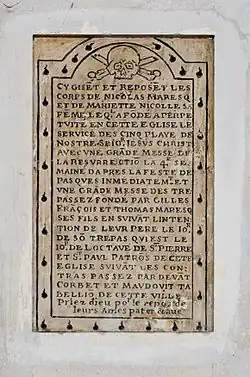 CY GISET ET REPOSET LES
CORPS DE NICOLAS MARESQ
ET DE MARIETTE NICOLLE SA
FEME LEQL A FODE A PERPE
TUITE EN CETTE EGLISE LE
SERVICE DES CINQ PLAYE DE
NOSTRE SEIG. IESUS CHRIST
AVEC VNE GRADE MESSE DE
LA RESURRECTIO LA 4E SE
MAINE DAPRES LA FESTE DE
PASQVES INMEDIATEMT ET
VNE GRADE MESSE DES TRE
PASSEZ FONDE PAR GILLES
FRAÇOIS ET THOMAS MARESQ
SES FILS EN SUIVAT LINTEN
TION DE LEVR PERE LE IOR
DE SO TREPAS QVI EST LE
IOR DE LOCTAVE DE ST PIERRE
ET ST PAVL PATROS DE CETE
EGLISE SVIVAT LES CON
TRAS PASSEZ PAR DEVAT
CORBET ET MAVDOVIT TA
BELLIO DE CETTE VILLE
Priez dieu por le repos de
leurs Ames pater &aue